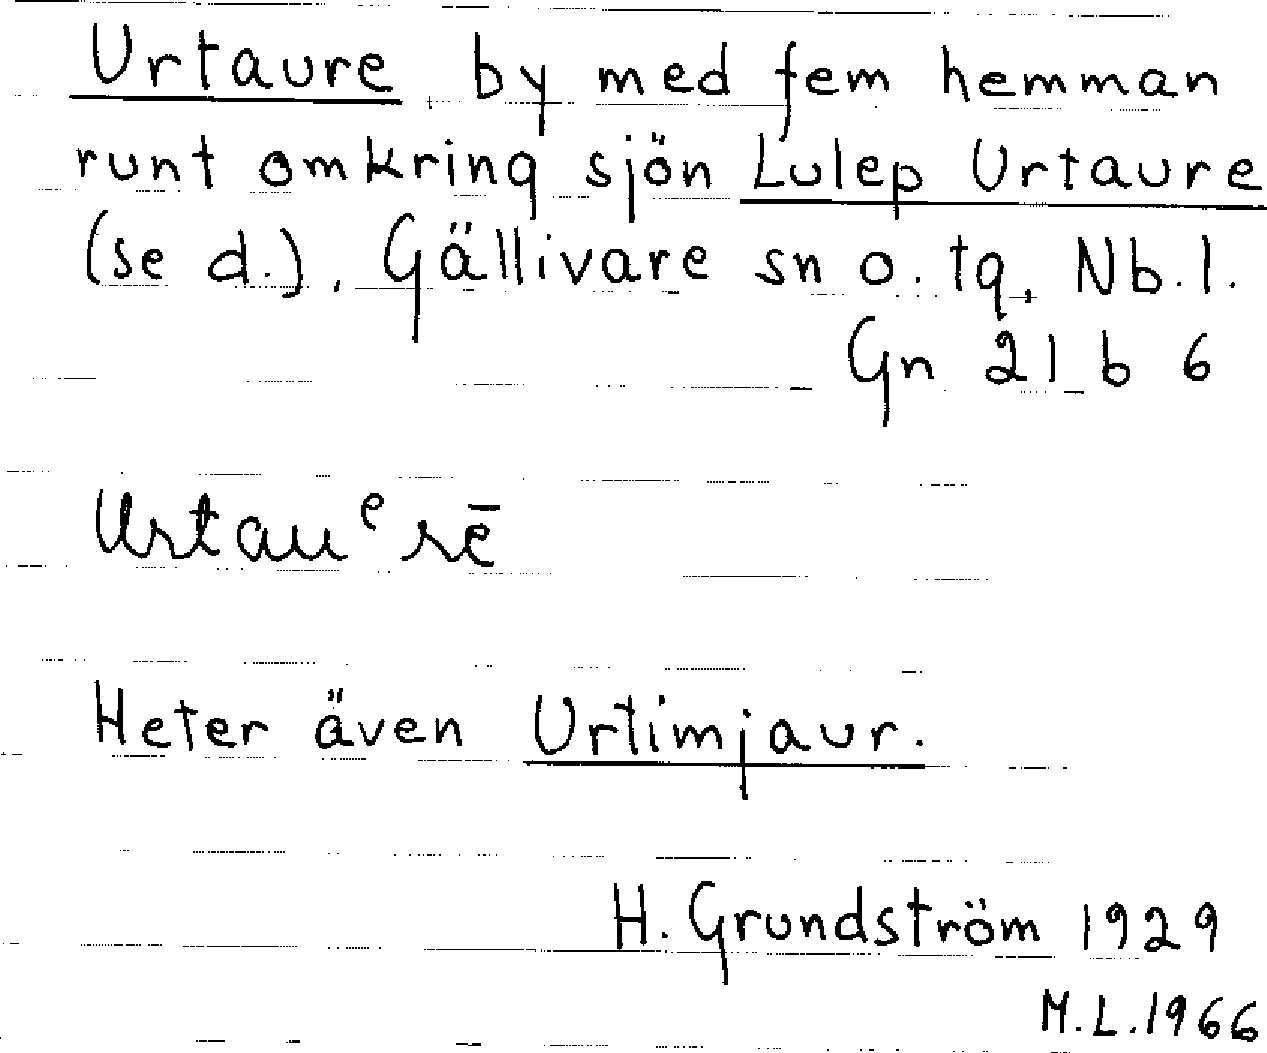 Urtaure by med fem hemman
runt omkring sjön Lulep Urtaure
(se d.), Gällivare sn o. tg, Nb.l.
Gn 21 b 6
Urtauᵉrē
Heter även Urtimjaur.
H. Grundström 1929
M.L.1966